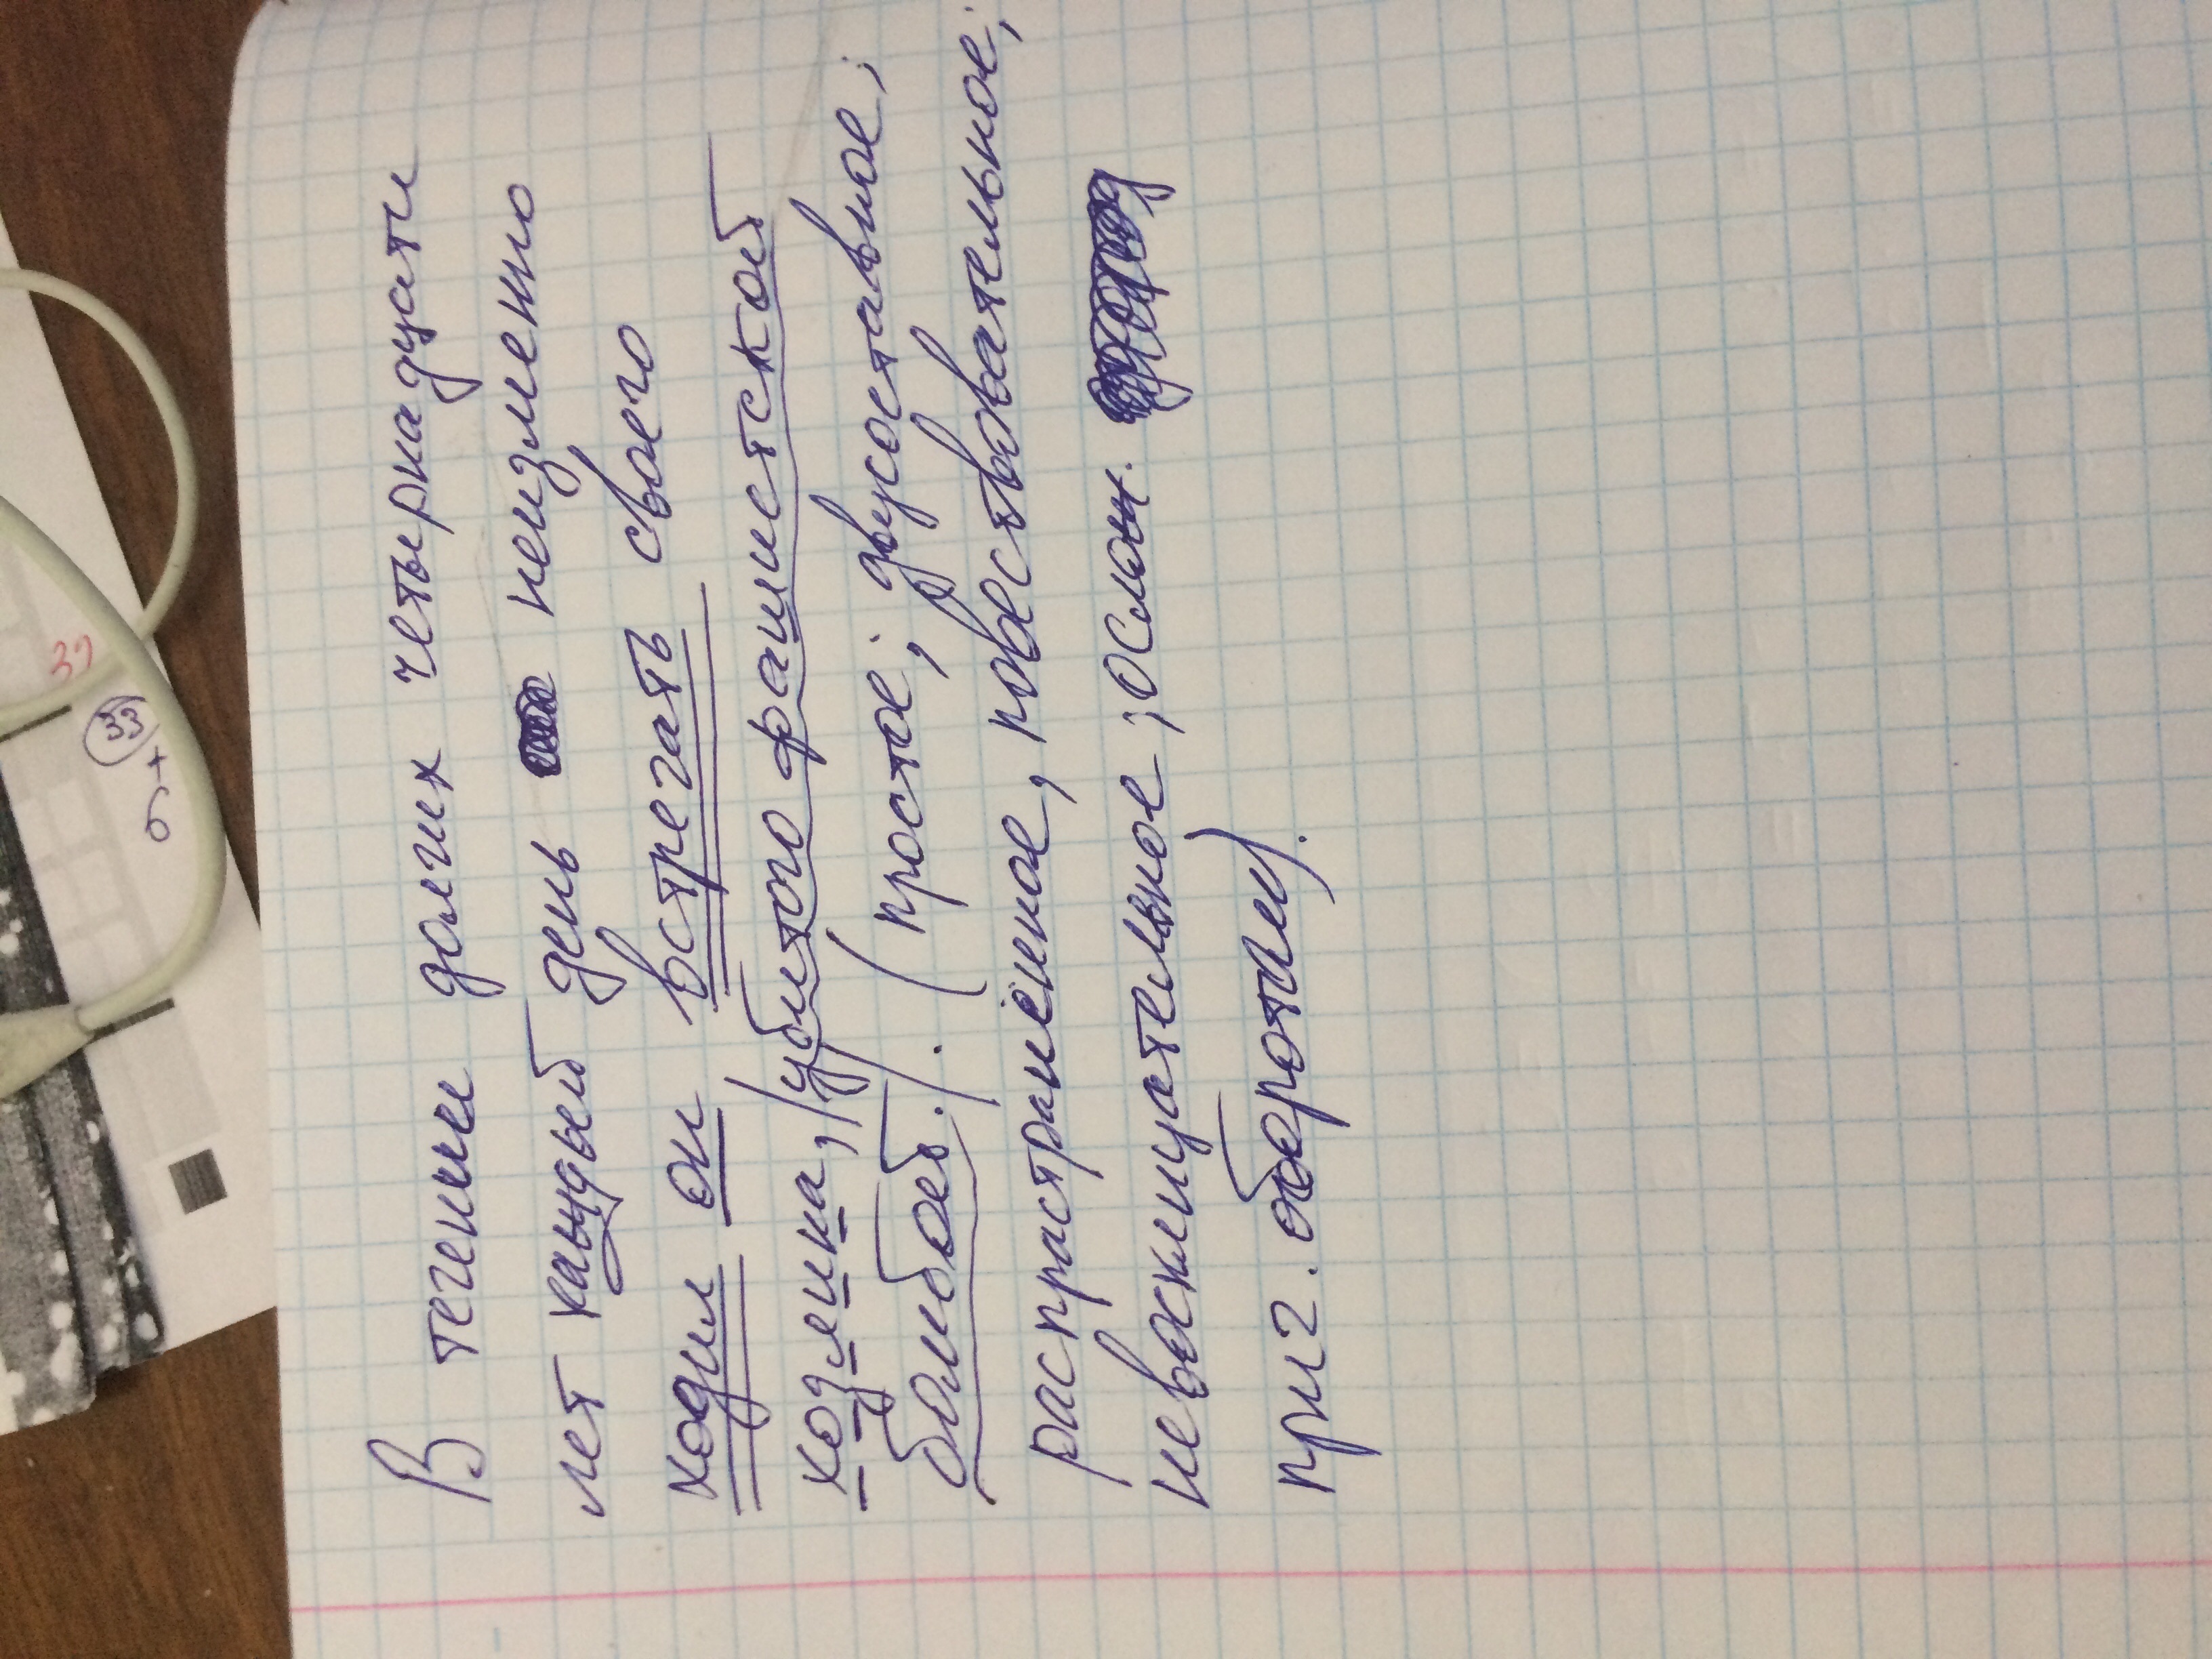 В течении долгих четыркадцати
лет каждый день неизменно
ходил он встречать своего
хозяина, убитого фашистской
бомбой. (простое; двусоставное;
распрастранённое, повествовательное;
невосклицательное; ослож.
прич. оборотам).
33
37